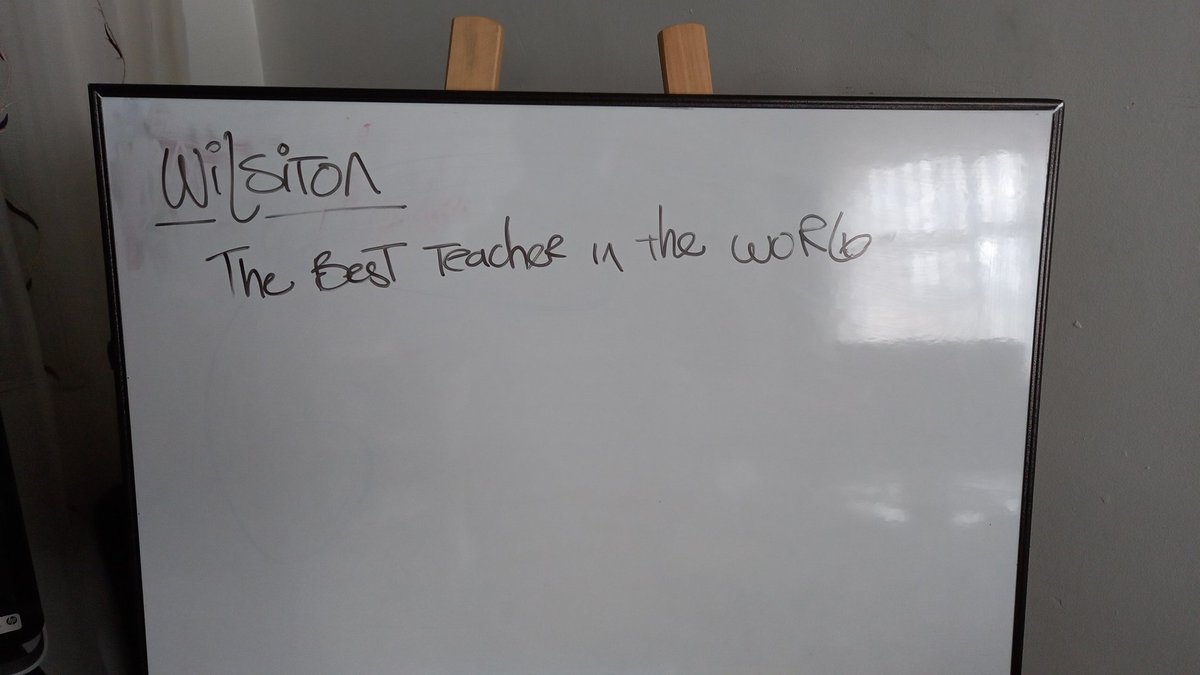 WilsiTon
The BesT TeacheR in the woRlD
hp